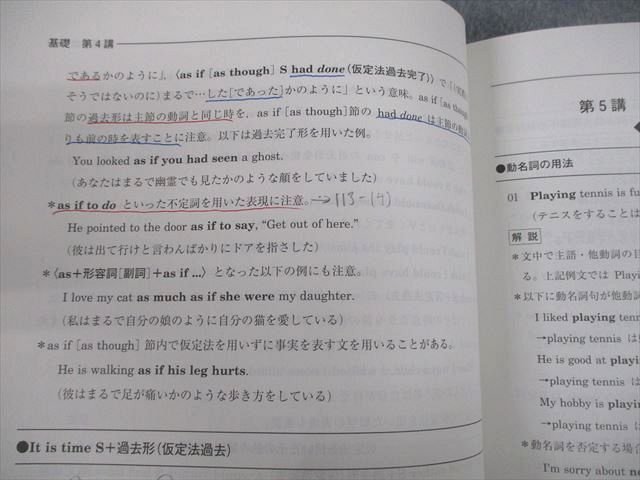 基礎 第4講
であるかのように」,〈as if [as though] S had done(仮定法過去完了)〉で「(実際は
そうではないのに)まるで…した[であった]かのように」という意味。as if [as though]
節の過去形は主節の動詞と同じ時を，as if [as though]節の had done は主節の動詞よ
りも前の時を表すことに注意。以下は過去完了形を用いた例。
You looked as if you had seen a ghost.
(あなたはまるで幽霊でも見たかのような顔をしていました)
＊as if to do といった不定詞を用いた表現に注意。→113-(4)
He pointed to the door as if to say, “Get out of here.”
(彼は出て行けと言わんばかりにドアを指さした)
＊〈as＋形容詞[副詞]＋as if ...〉となった以下の例にも注意。
I love my cat as much as if she were my daughter.
(私はまるで自分の娘のように自分の猫を愛している)
＊as if [as though] 節内で仮定法を用いずに事実を表す文を用いることがある。
He is walking as if his leg hurts.
(彼はまるで足が痛いかのような歩き方をしている)
●It is time S＋過去形(仮定法過去)
第5講
●動名詞の用法
01 Playing tennis is fu
(テニスをすることは
解説
＊文中で主語・他動詞の目
る。上記例文では Playi
＊以下に動名詞句が他動詞
I liked playing tenn
→playing tennis は
He is good at playi
→playing tennis
My hobby is playi
→playing tennis は
＊動名詞を否定する場合
I'm sorry about n